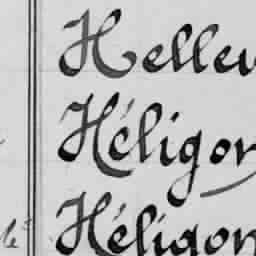 Hellev
Héligon
Héligon